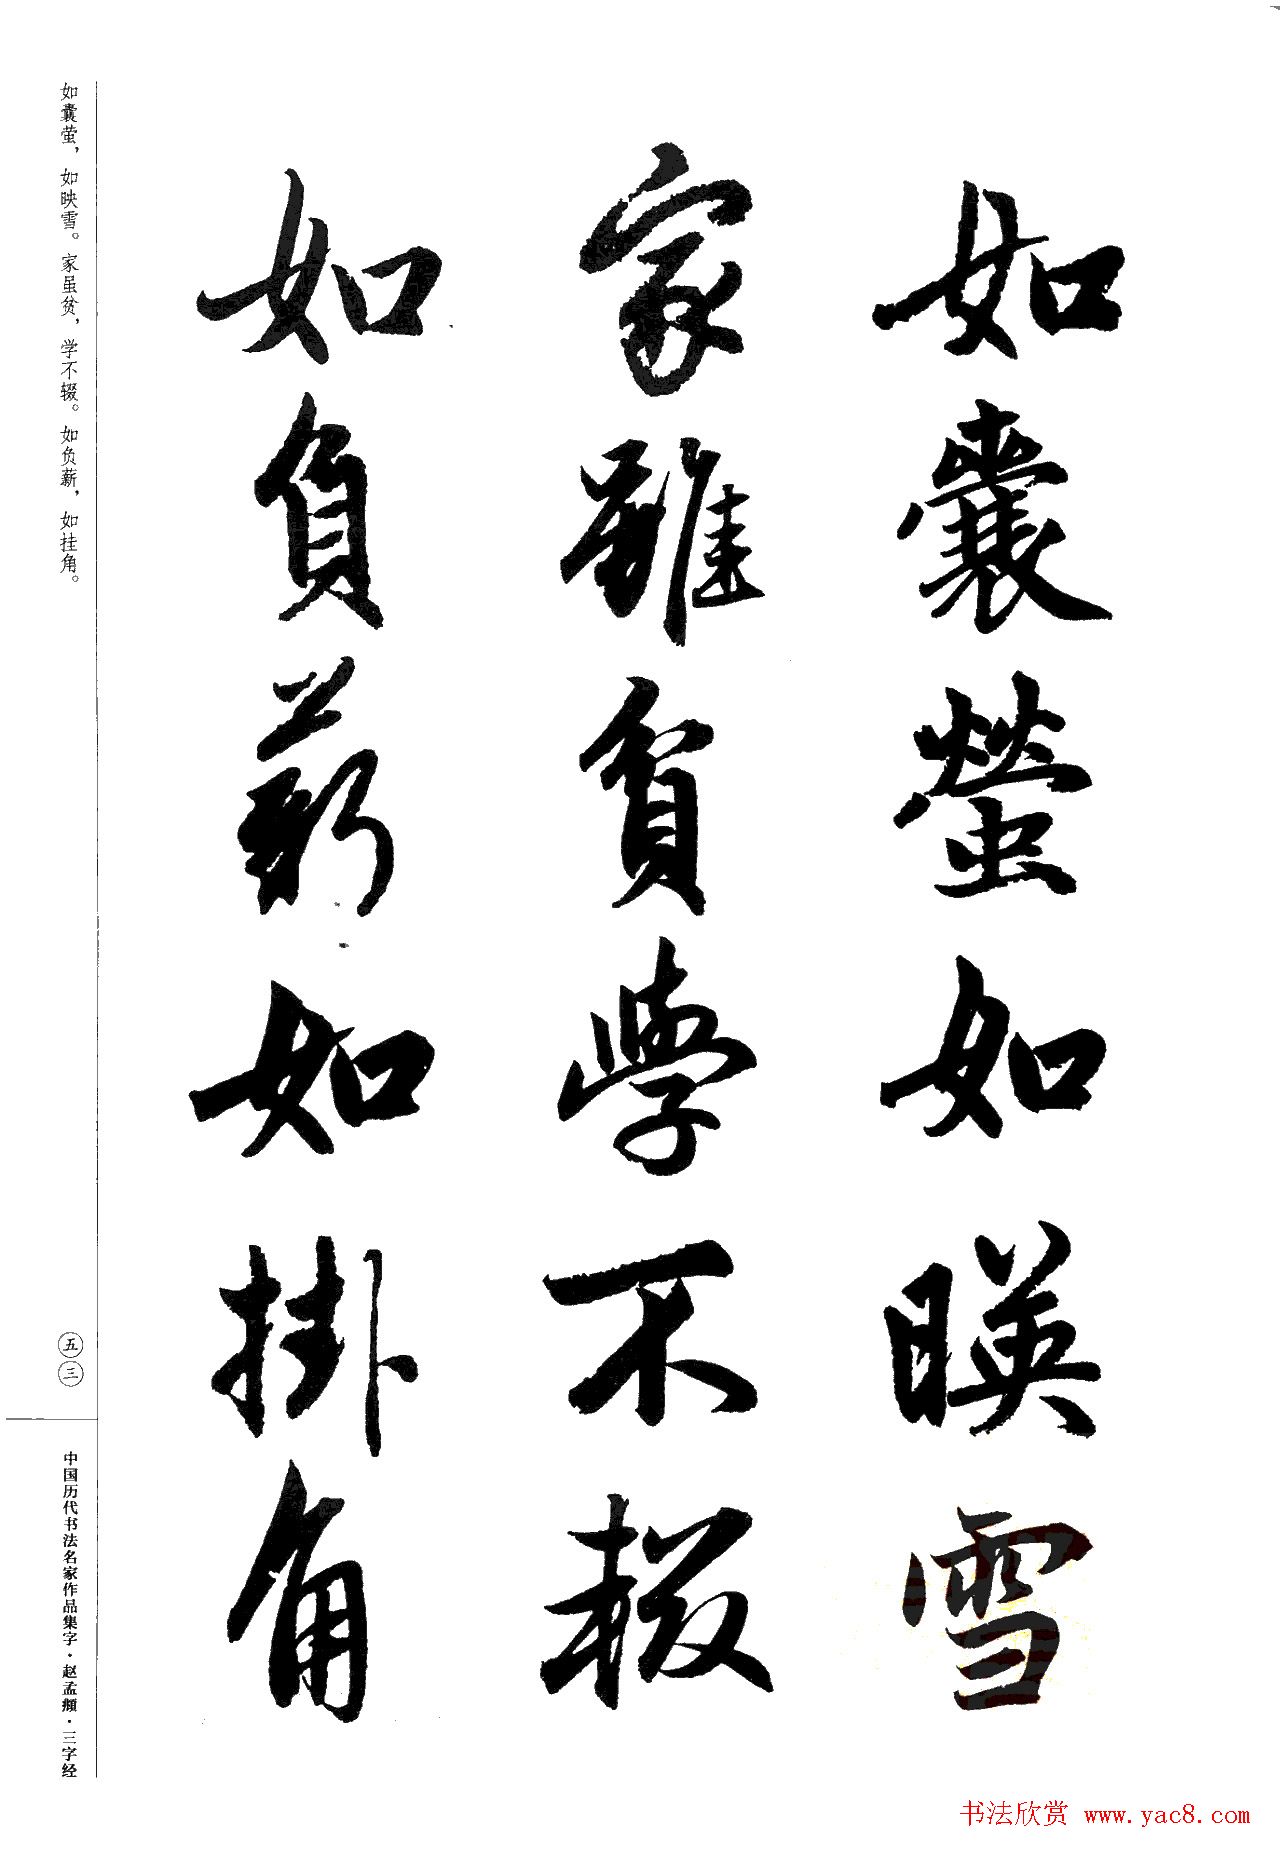 如囊螢如暎雪
家雖貧學不輟
如負薪如掛角
如囊萤，如映雪。家虽贫，学不辍。如负薪，如挂角。
五三
中国历代书法名家作品集字·赵孟頫·三字经
书法欣赏 www.yac8.com